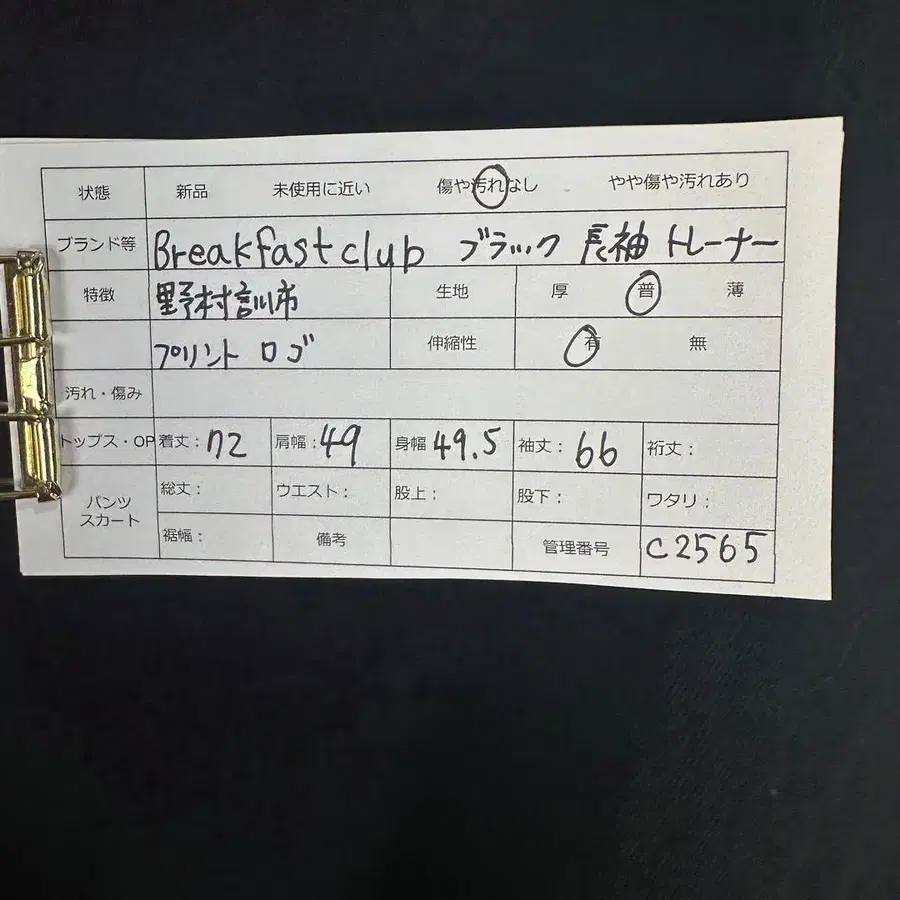 状態 新品 未使用に近い 傷や汚れなし やや傷や汚れあり
ブランド等 Breakfast club ブラック 長袖 トレーナー
特徴 野村訓市 生地 厚 普 薄
プリント ロゴ 伸縮性 有 無
汚れ・傷み
トップス・OP 着丈：72 肩幅：49 身幅 49.5 袖丈：66 裄丈：
パンツ スカート 総丈： ウエスト： 股上： 股下： ワタリ：
裾幅： 備考 管理番号 C2565